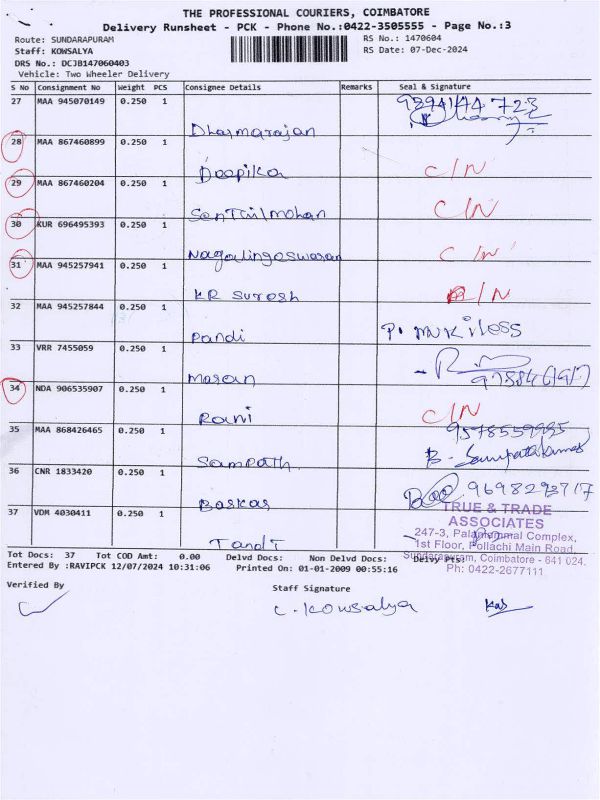 THE PROFESSIONAL COURIERS, COIMBATORE
Delivery Runsheet - PCK - Phone No.:0422-3505555 - Page No.:3
Route: SUNDARAPURAM RS No.: 1470604
Staff: KOWSALYA RS Date: 07-Dec-2024
DRS No.: DCJB147060403
Vehicle: Two Wheeler Delivery
S No Consignment No Weight PCS Consignee Details Remarks Seal & Signature
27 MAA 945070149 0.250 1
Dharmarajan
28 MAA 867460899 0.250 1
Deepika C/N
29 MAA 867460204 0.250 1
Senthilmohan C/N
30 KUR 696495393 0.250 1
Nagalingeswaran C/N
31 MAA 945257941 0.250 1
KR Suresh C/N
32 MAA 945257844 0.250 1
Pandi P. Mukiless
33 VRR 7455059 0.250 1
Masan
34 NDA 906535907 0.250 1
Rani C/N
35 MAA 868426465 0.250 1 9578559995
Sampath B. Sampathkumar
36 CNR 1833420 0.250 1
Baskar 9698293717
37 VDM 4030411 0.250 1
TandT
TRUE & TRADE
ASSOCIATES
247-3, Palaniammal Complex,
1st Floor, Pollachi Main Road,
Sundarapuram, Coimbatore - 641 024.
Ph: 0422-2677111
Tot Docs: 37 Tot COD Amt: 0.00 Delvd Docs: Non Delvd Docs: Delvy Pts:
Entered By :RAVIPCK 12/07/2024 10:31:06 Printed On: 01-01-2009 00:55:16
Verified By Staff Signature
C. Kowsalya